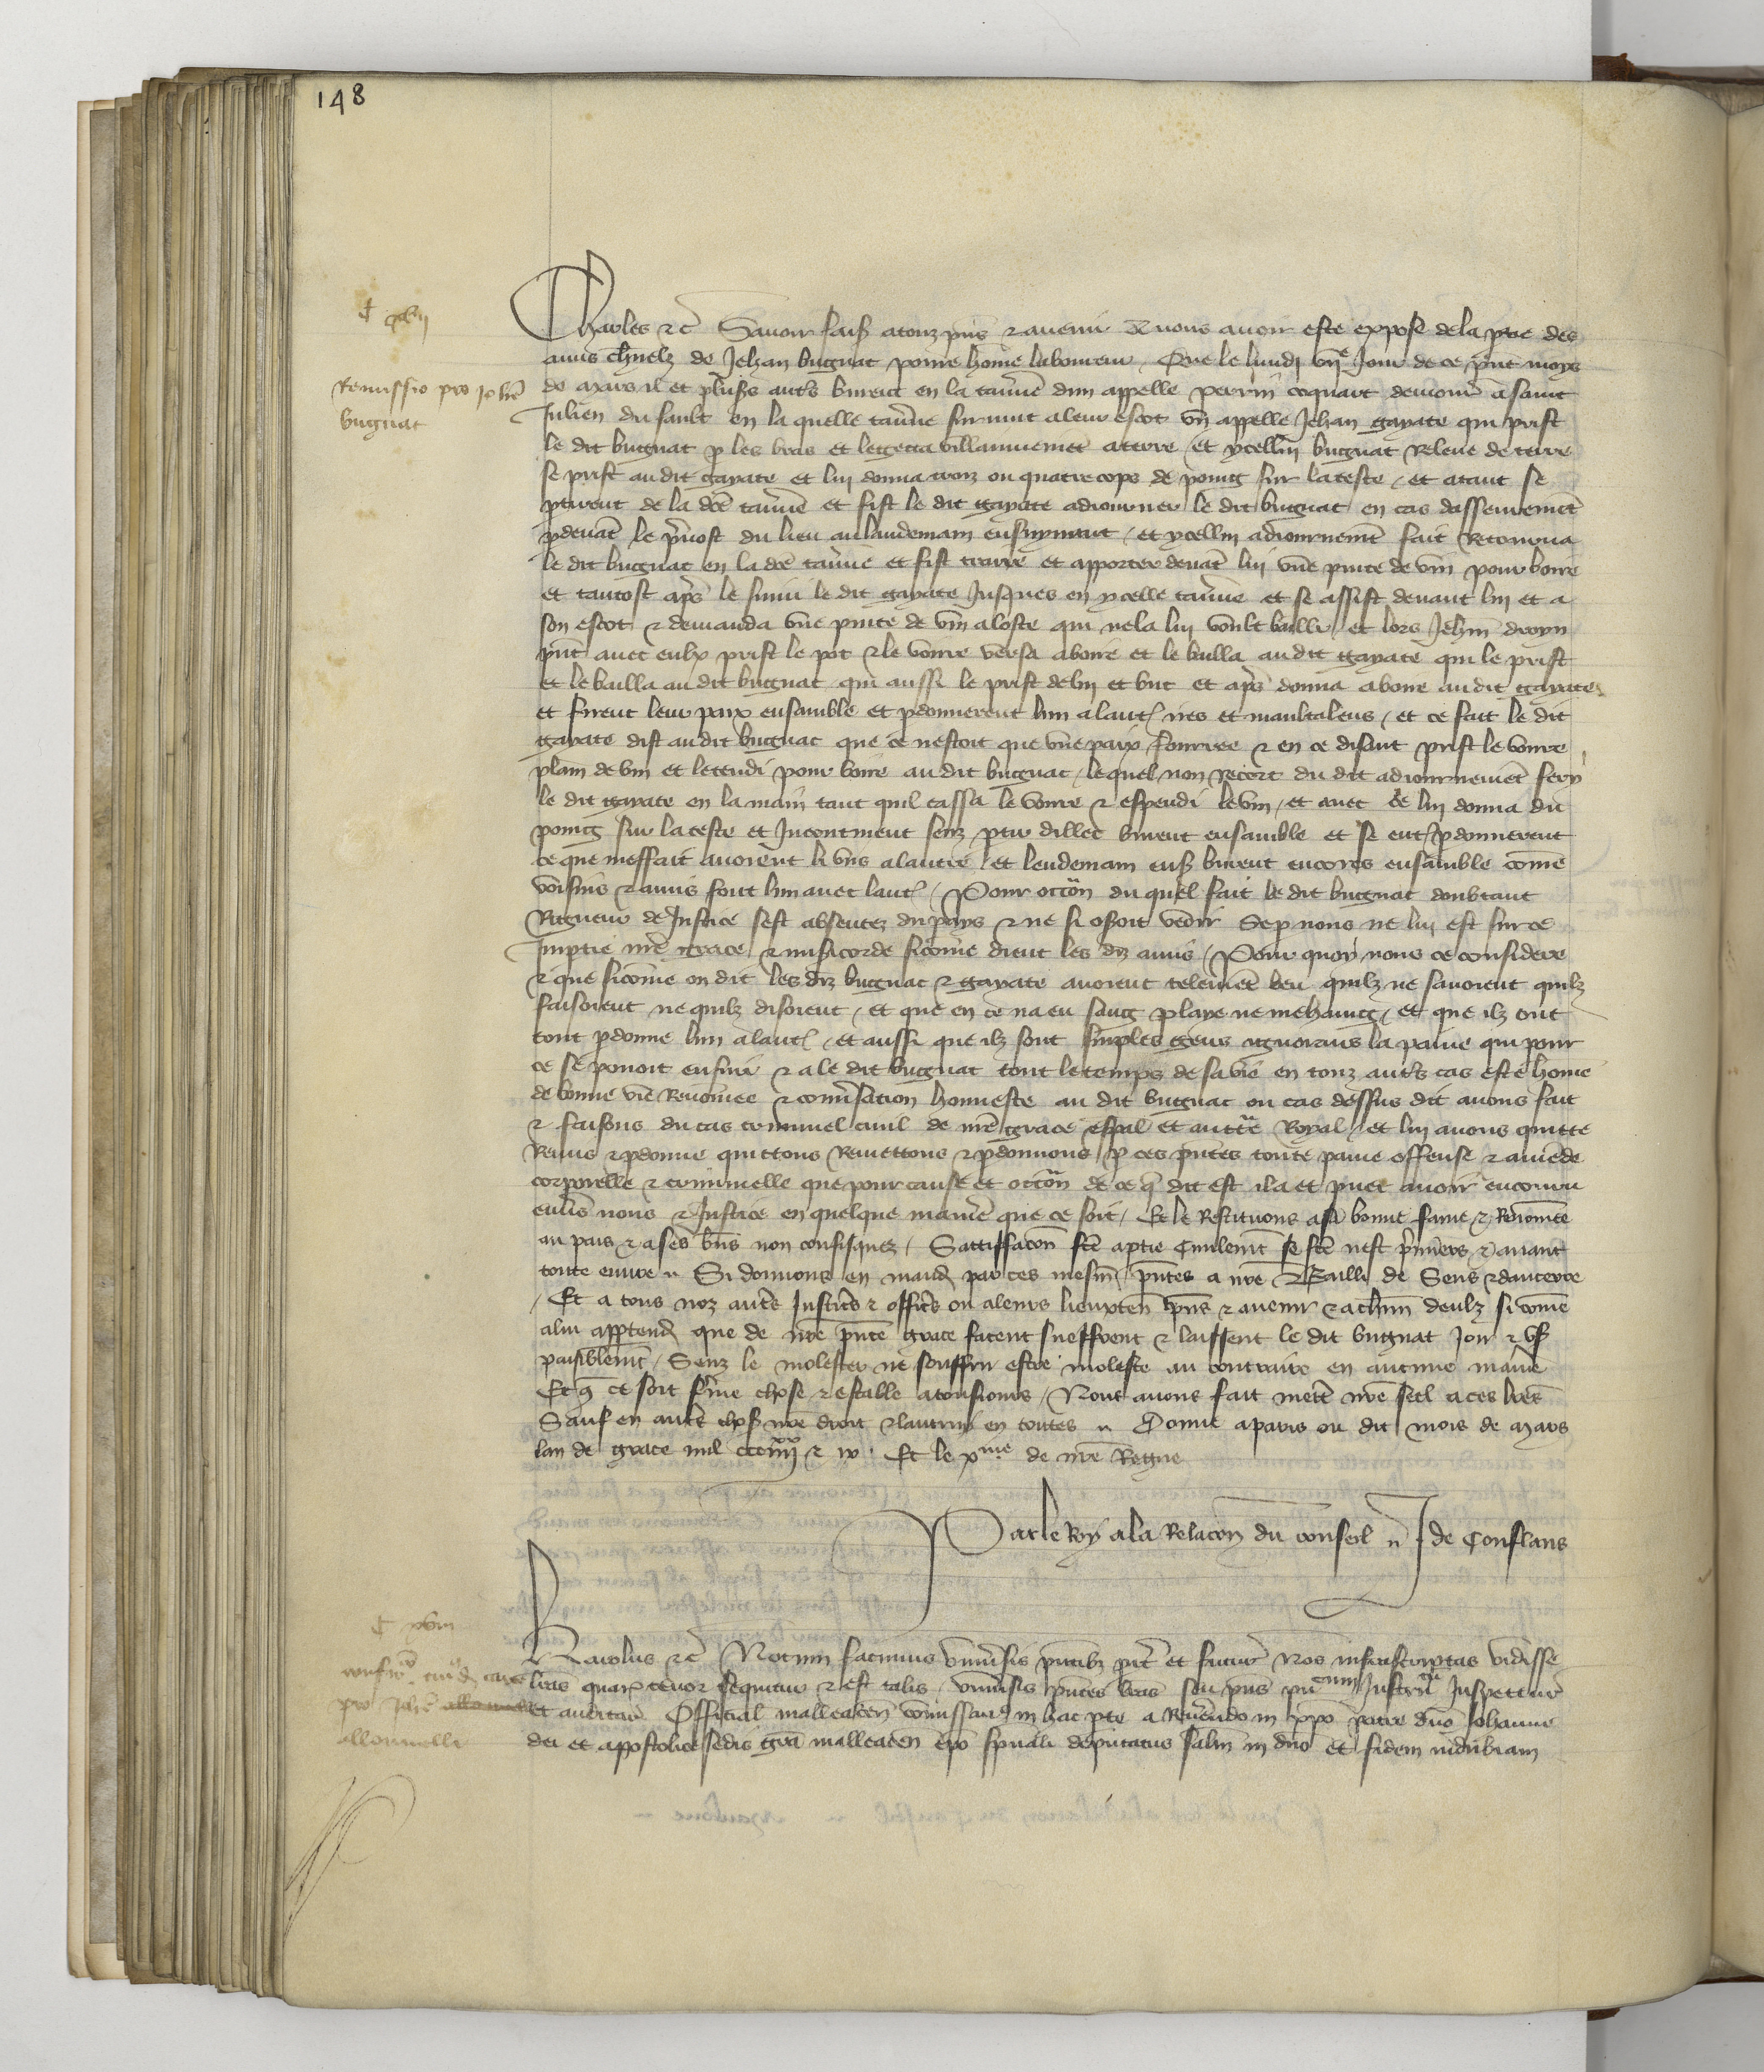 148
Charles etc Savoir faiss a touz pns et avenir A nous avoir este expose de la ptie des
amis charnelz de Jehan bugnat povre home laboureur Que le lundi vije Jour de ce pnt moys
de mars il et pluss autrs burent en la tavne dun appelle perrin coquart demour a saint
Julien du sault en la quelle tavne survint a leur escot un appelle Jehan gayate qui prist
le dit bugnat p les bras et le gecta villainnemet a terre et ycellui bugnat Releve de terre
se prist au dit gayate et lui donna troiz ou quatre cops de poing sur la teste et atant se
ptirent de la dce tavne et fist le dit gayate adiourner le dit bugnat en cas dasseuremet
pdevat le pvost du lieu au landemain ensuynant et ycellui adiournemet fait Retourna
le dit bugnat en la dce tavne et fist traire et apporter devat lui une pinte de vin pour boire
et tantost aps le suivi le dit gayate Jusques en ycelle tavne et se assist devant lui et a
son escot et demanda une pinte de vin a loste qui ne la lui voult bailler et lors Jehan droyn
pnt avec eulx prist le pot et le voirre versa a boire et le bailla au dit gayate qui le prist
et le bailla au dit bugnat qui aussi le prist de lui et but et aps donna a boire au dit gayate
et firent leur paix ensamble et pdonnerent lun a laut ires et maultalens et ce fait le dit
gayate dist au dit bugnat que ce nestoit que une paix fourree et en ce disant prist le voirre
plain de vin et le tendi pour boire au dit bugnat lequel non recort du dit adiournemet fery
le dit gayate en la main tant quil cassa le voirre et espendi le vin et avec ce lui donna du
poing sur la teste et Incontinent senz ptir dillec burent ensamble et se entpdonnerent
ce que meffait avoient li uns a lautre et lendemain enss burent encores ensamble come
voisins et amis font lun avec laut Pour occon du quel fait le dit bugnat doubtant
Rigueur de Justice sest absentez du pays et ne si osoit venir Se p nous ne lui est sur ce
Impartie nre grace et misicorde sicome dient les diz amis Pour quoy nous ce considere
et que sicome on dit les diz bugnat et gayate avoient telemet beu quilz ne savoient quilz
faisoient ne quilz disoient et que en ce na eu sang playe ne mehaing et que ilz ont
tout pdonne lun a laut et aussi que ilz sont simples gens ignorans la paine qui pour
ce se povoit ensuir et a le dit bugnat tout le temps de sa vie en touz autrs cas este home
de bonne vie Renomee et conversation honneste au dit bugnat ou cas dessus dit avons fait
et faisons du cas criminel civil de nre grace espal et auctte Royal et lui avons quitte
Remis et pdonne quittons Remettons et pdonnons p ces pntes toute paine offense et amede
corporelle et criminelle que pour cause et occon de ce q dit est il a et puet avoir encouru
envers nous et Justice en quelque maniere que ce soit Et le Restituons a sa bonne fame et Renomee
au pais et a ses bns non confisquez Sattiffacon fce a ptie civilemt se fce nest primiers et avant
toute euvre Si donnons en mand par ces mesm pntes a nre Bailli de Sens et daucerre
Et a tous noz autrs Justicrs et officrs ou a leurs lieuxten pns et avenir et a chun deulz si come
a lui apptend que de nre pnte grace facent sueffrent et laissent le dit bugnat Joir et us
paisiblemt Senz le molester ne souffrir estre moleste au contraire en aucune maniere
Et q ce soit ferme chose et estable a tousiours Nous avons fait mettre nre seel a ces lres
Sauf en autrs chos nre droit et lautruy en toutes Donne a paris ou dit mois de mars
lan de grace mil ccciiijxx et ix Et le xme de nre Regne
Par le Roy a la Relacon du conseil J de Conflans
Remissio pro Johe
bugnat
Karolus etc Notum facimus universis pntibz prit et futur Nos infrascriptas vidisse
lras quar tenor sequitur et est talis Universis pntes lras seu pns pn Instrum Inspectur
et auditur Official malleacen comissarius in hac pte a Revendo in xpo patre dno Johanne
dei et appostolice sedis gra malleacen epo spuali deputatus salm in dno et fidem indubiam